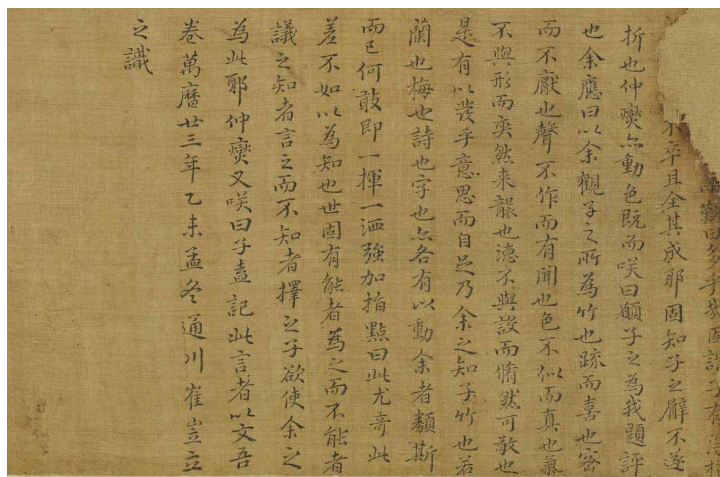 難曰多乎哉固請子有
不卒且全其成耶固知子之癖不遂
折也仲燮亦動色既而咲曰願子之為我題評
也余應曰以余觀子之所為竹也疏而喜也密
而不厭也聲不作而有聞也色不似而真也氣
不與形而奕然来襲也德不與設而脩然可敬也
是有以發乎意思而自足乃余之知子竹也若
蘭也梅也詩也字也亦各有以動余者類斯
而已何敢即一揮一洒強加指點曰此尤奇此
差不如以為知也世固有能者為之而不能者
議之知者言之而不知者擇之子欲使余之
為此耶仲燮又咲曰子盍記此言者以文吾
卷萬曆廿三年乙未孟冬通川崔岦立
之識